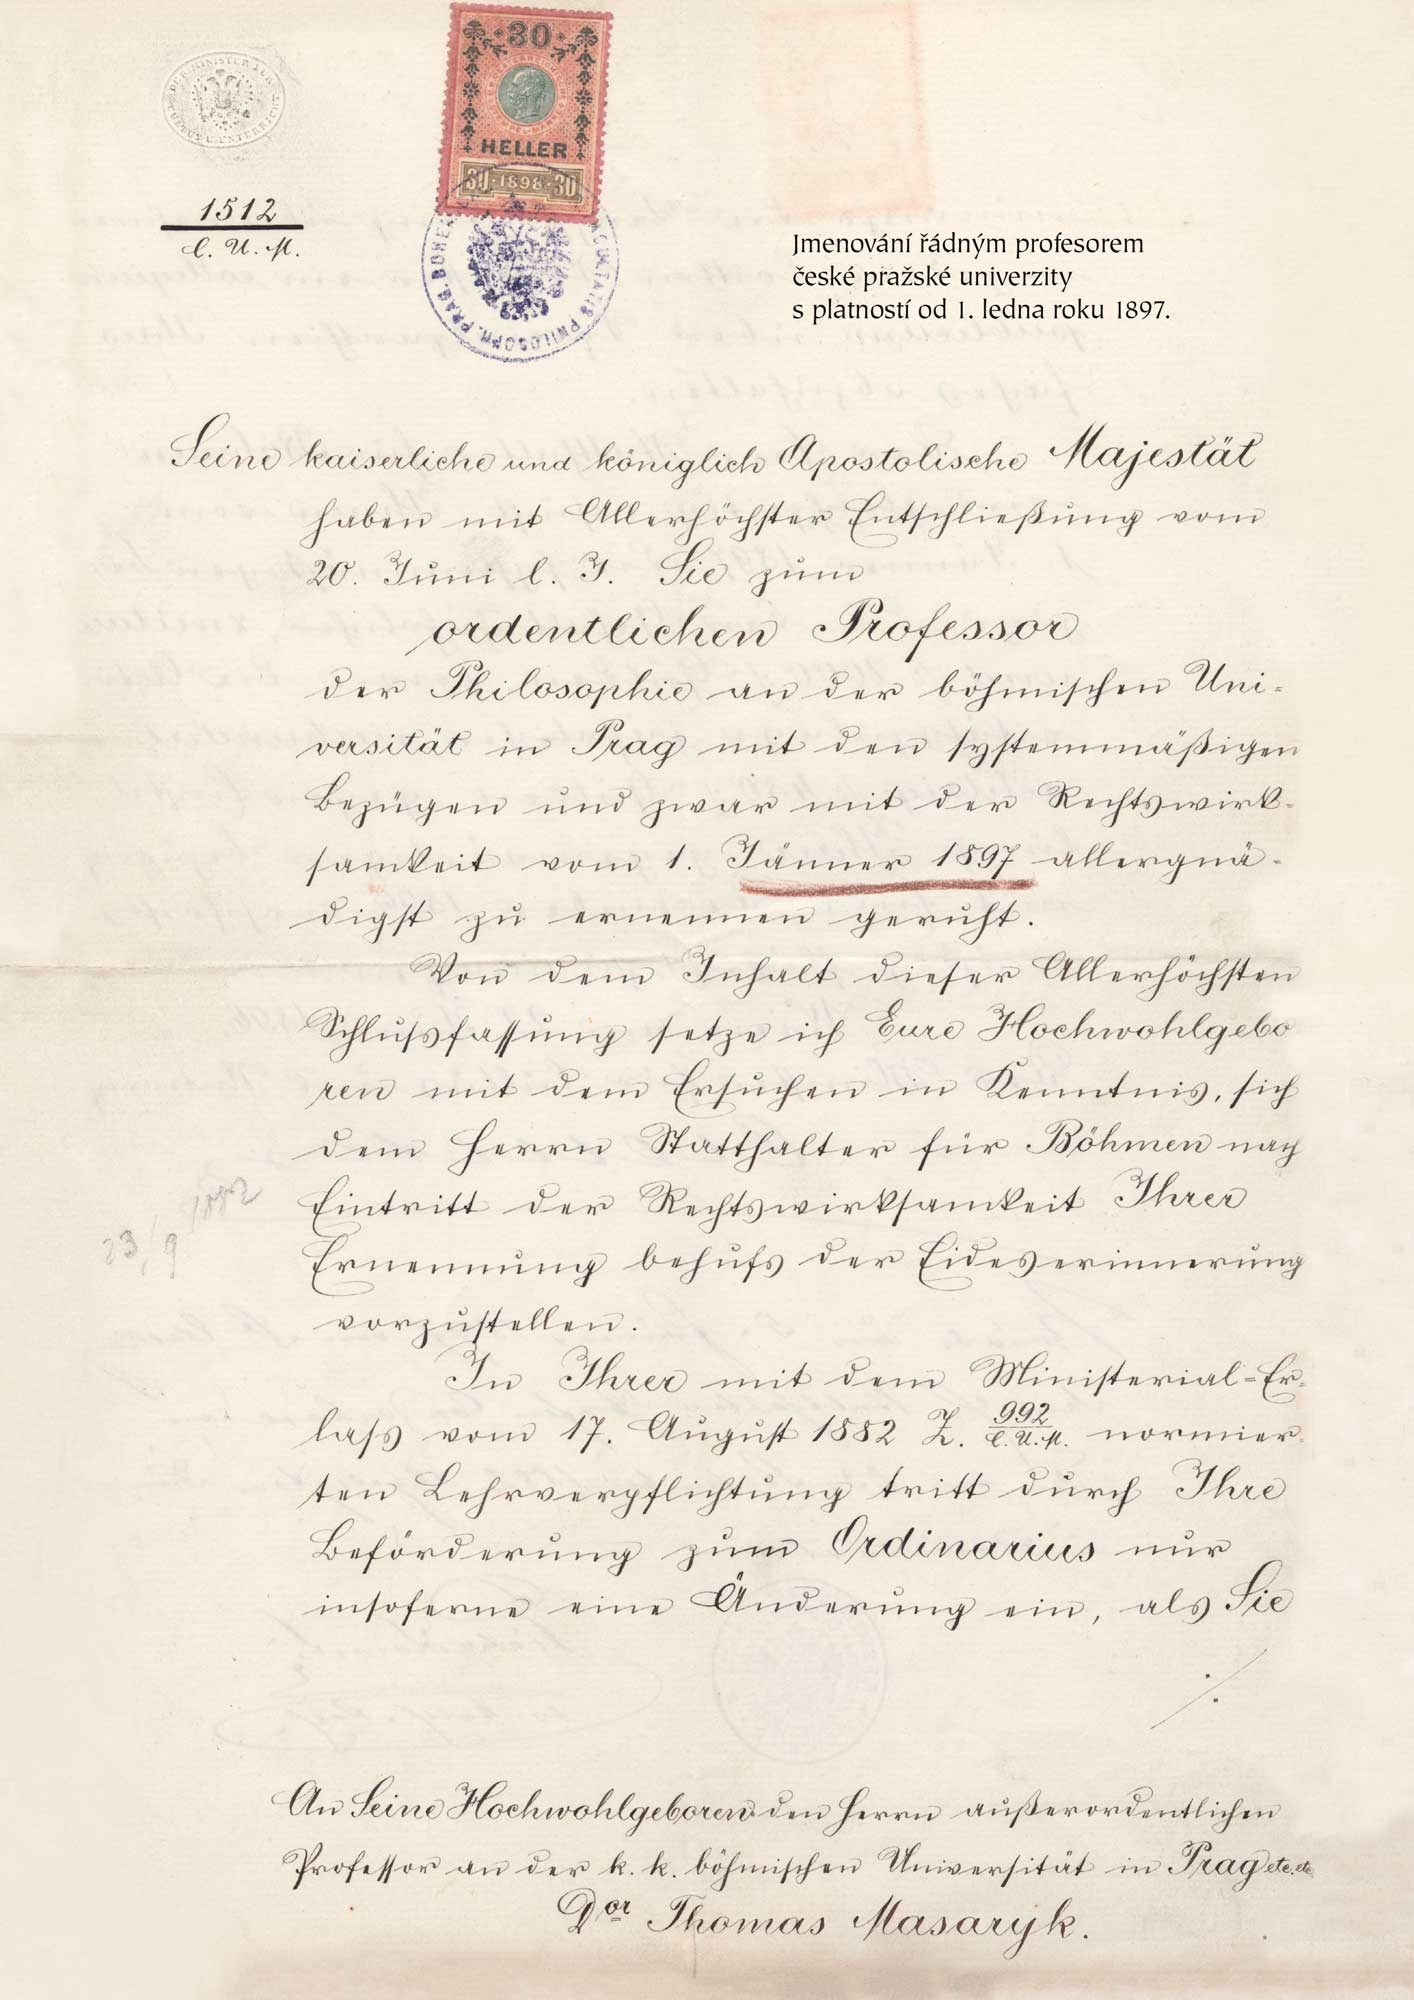 DER MINISTER FÜR CULTUS U. UNTERRICHT
30
HELLER
30 · 1898 · 30
1512
C. U. M.
PHILOSOPH. PRAG. BOHE
Jmenování řádným profesorem
české pražské univerzity
s platností od 1. ledna roku 1897.
Seine kaiserliche und königlich Apostolische Majestät
haben mit Allerhöchster Entschließung vom
20. Juni l. J. Sie zum
ordentlichen Professor
der Philosophie an der böhmischen Uni-
versität in Prag mit den systemmäßigen
Bezügen und zwar mit der Rechtswirk-
samkeit vom 1. Jänner 1897 allergnä-
digst zu ernennen geruht.
Von dem Inhalt dieser Allerhöchsten
Schlussfassung setze ich Eure Hochwohlgebo
ren mit dem Ersuchen in Kenntnis, sich
dem Herrn Statthalter für Böhmen nach
Eintritt der Rechtswirksamkeit Ihrer
Ernennung behufs der Eideserinnerung
vorzustellen.
23/9 1882
In Ihrer mit dem Ministerial-Er-
lass vom 17. August 1882 Z. 992/C. U. M. normier-
ten Lehrverpflichtung tritt durch Ihre
Beförderung zum Ordinarius nur
insoferne eine Änderung ein, als Sie
./.
An Seine Hochwohlgeboren den Herrn außerordentlichen
Professor an der k. k. böhmischen Universität in Prag etc. etc
Dor Thomas Masaryk.